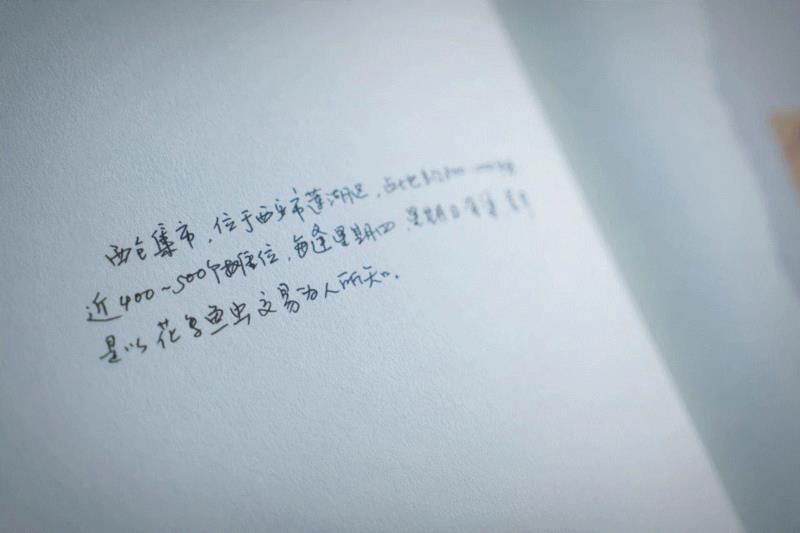 西仓集市，位于西安市莲湖区，占地约
近400~500个摊位，每逢星期四、星期日有集，
是以花鸟鱼虫交易为人所知。